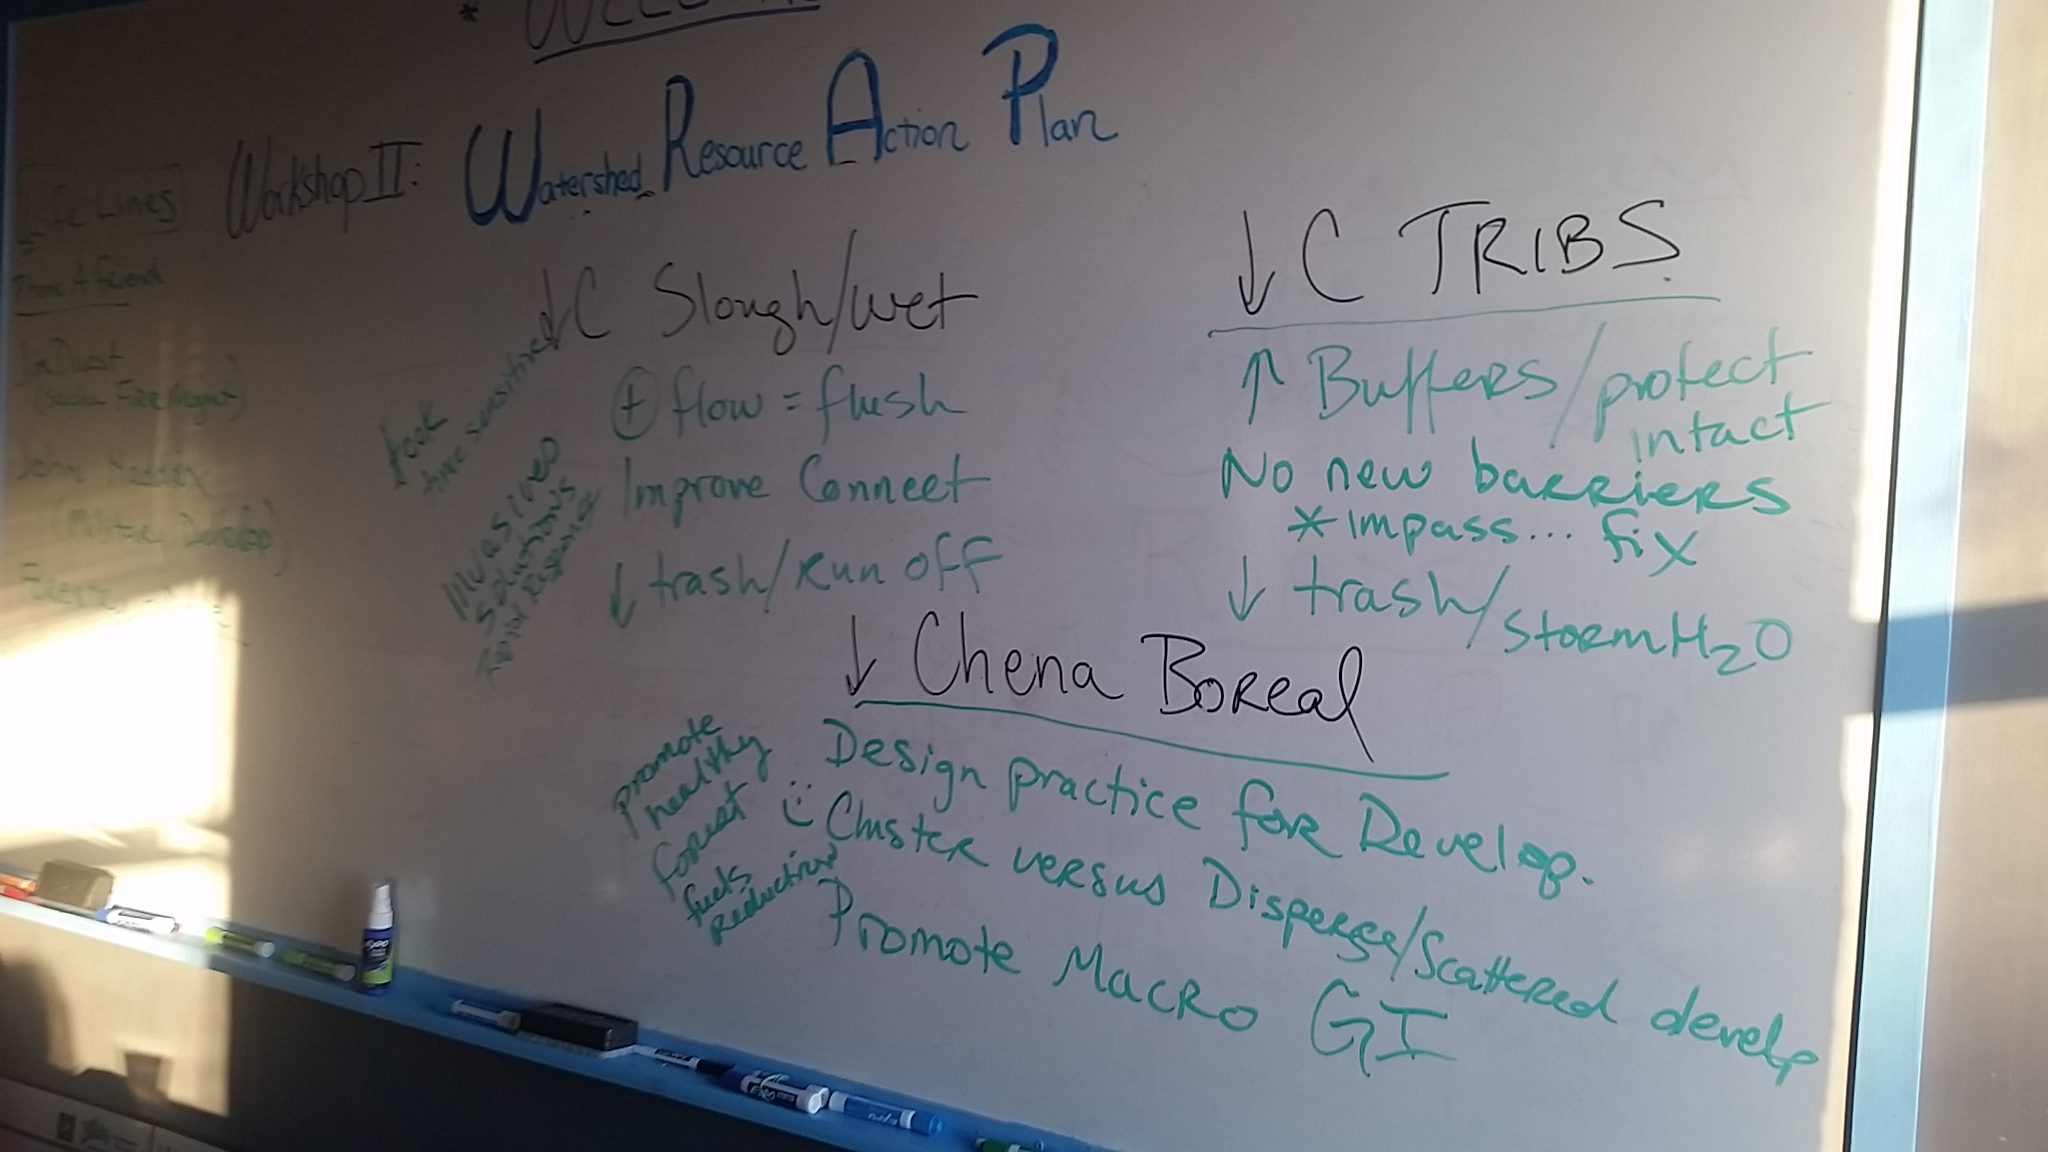 * WELCOME
Workshop II: Watershed Resource Action Plan
[Life Lines]
Phone A friend
(Military Develop)
↓ C Slough/wet
⊕ flow = flush
Improve Connect
↓ trash/Run off
time sensitive
Invasives
solutions
↓ C TRIBS
↑ Buffers/protect
intact
No new barriers
* impass... fix
↓ trash/stormH₂O
↓ Chena Boreal
Design practice for Develop.
Cluster versus Disperse/Scattered develp
Promote Macro GI
promote
healthy
forest
fuels
reduction
EXPO